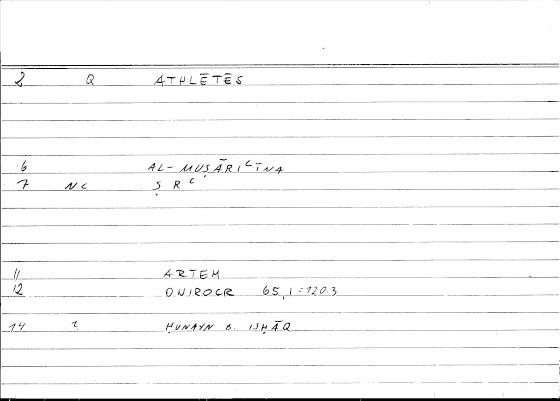 2 Q ATHLĒTĒS
6 AL-MUṢĀRIʿĪNA
7 NC Ṣ R ʿ
11 ARTEM
12 ONIROCR 65,1=120.3
14 2 ḤUNAYN B. ISḤĀQ